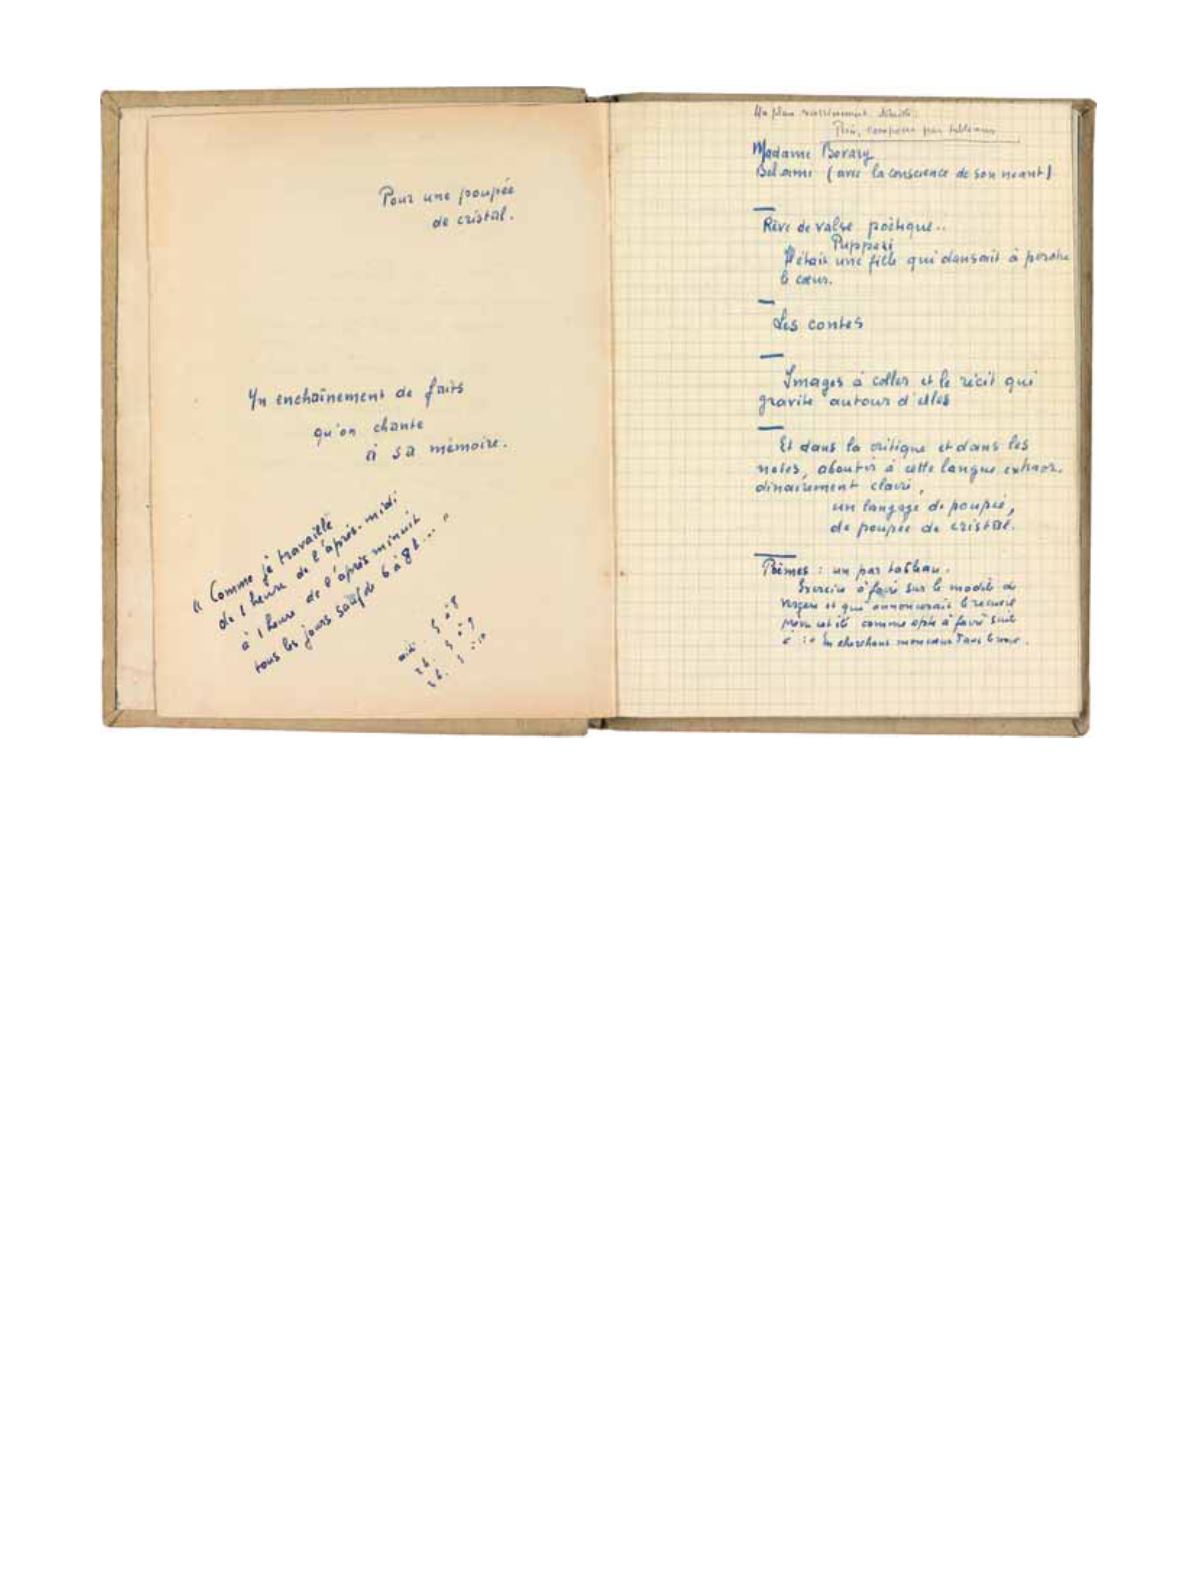 Pour une poupée
de cristal.
Un enchaînement de faits
qu'on chante
à sa mémoire.
" Comme je travaille
de 1 heure de l'après-midi
à 1 heure de l'après minuit
tous les jours sauf de 6 à 8h... "
5 à 8
Un plan
Puis, composer par tableaux
Madame Bovary
Bel ami (avec la conscience de son néant)
Rêve de valse poétique..
Pupperi
C'était une fille qui dansait à perdre
le cœur.
Les contes
Images à coller et le récit qui
gravite autour d'elles
Et dans la critique et dans les
notes, aboutir à cette langue extraor.
dinairement claire,
un langage de poupée,
de poupée de cristal.
Poèmes : un par tableau.
Exercice à faire sur le modèle de
vergers et qui annoncerait le recueil
comme apte à faire suite
à :